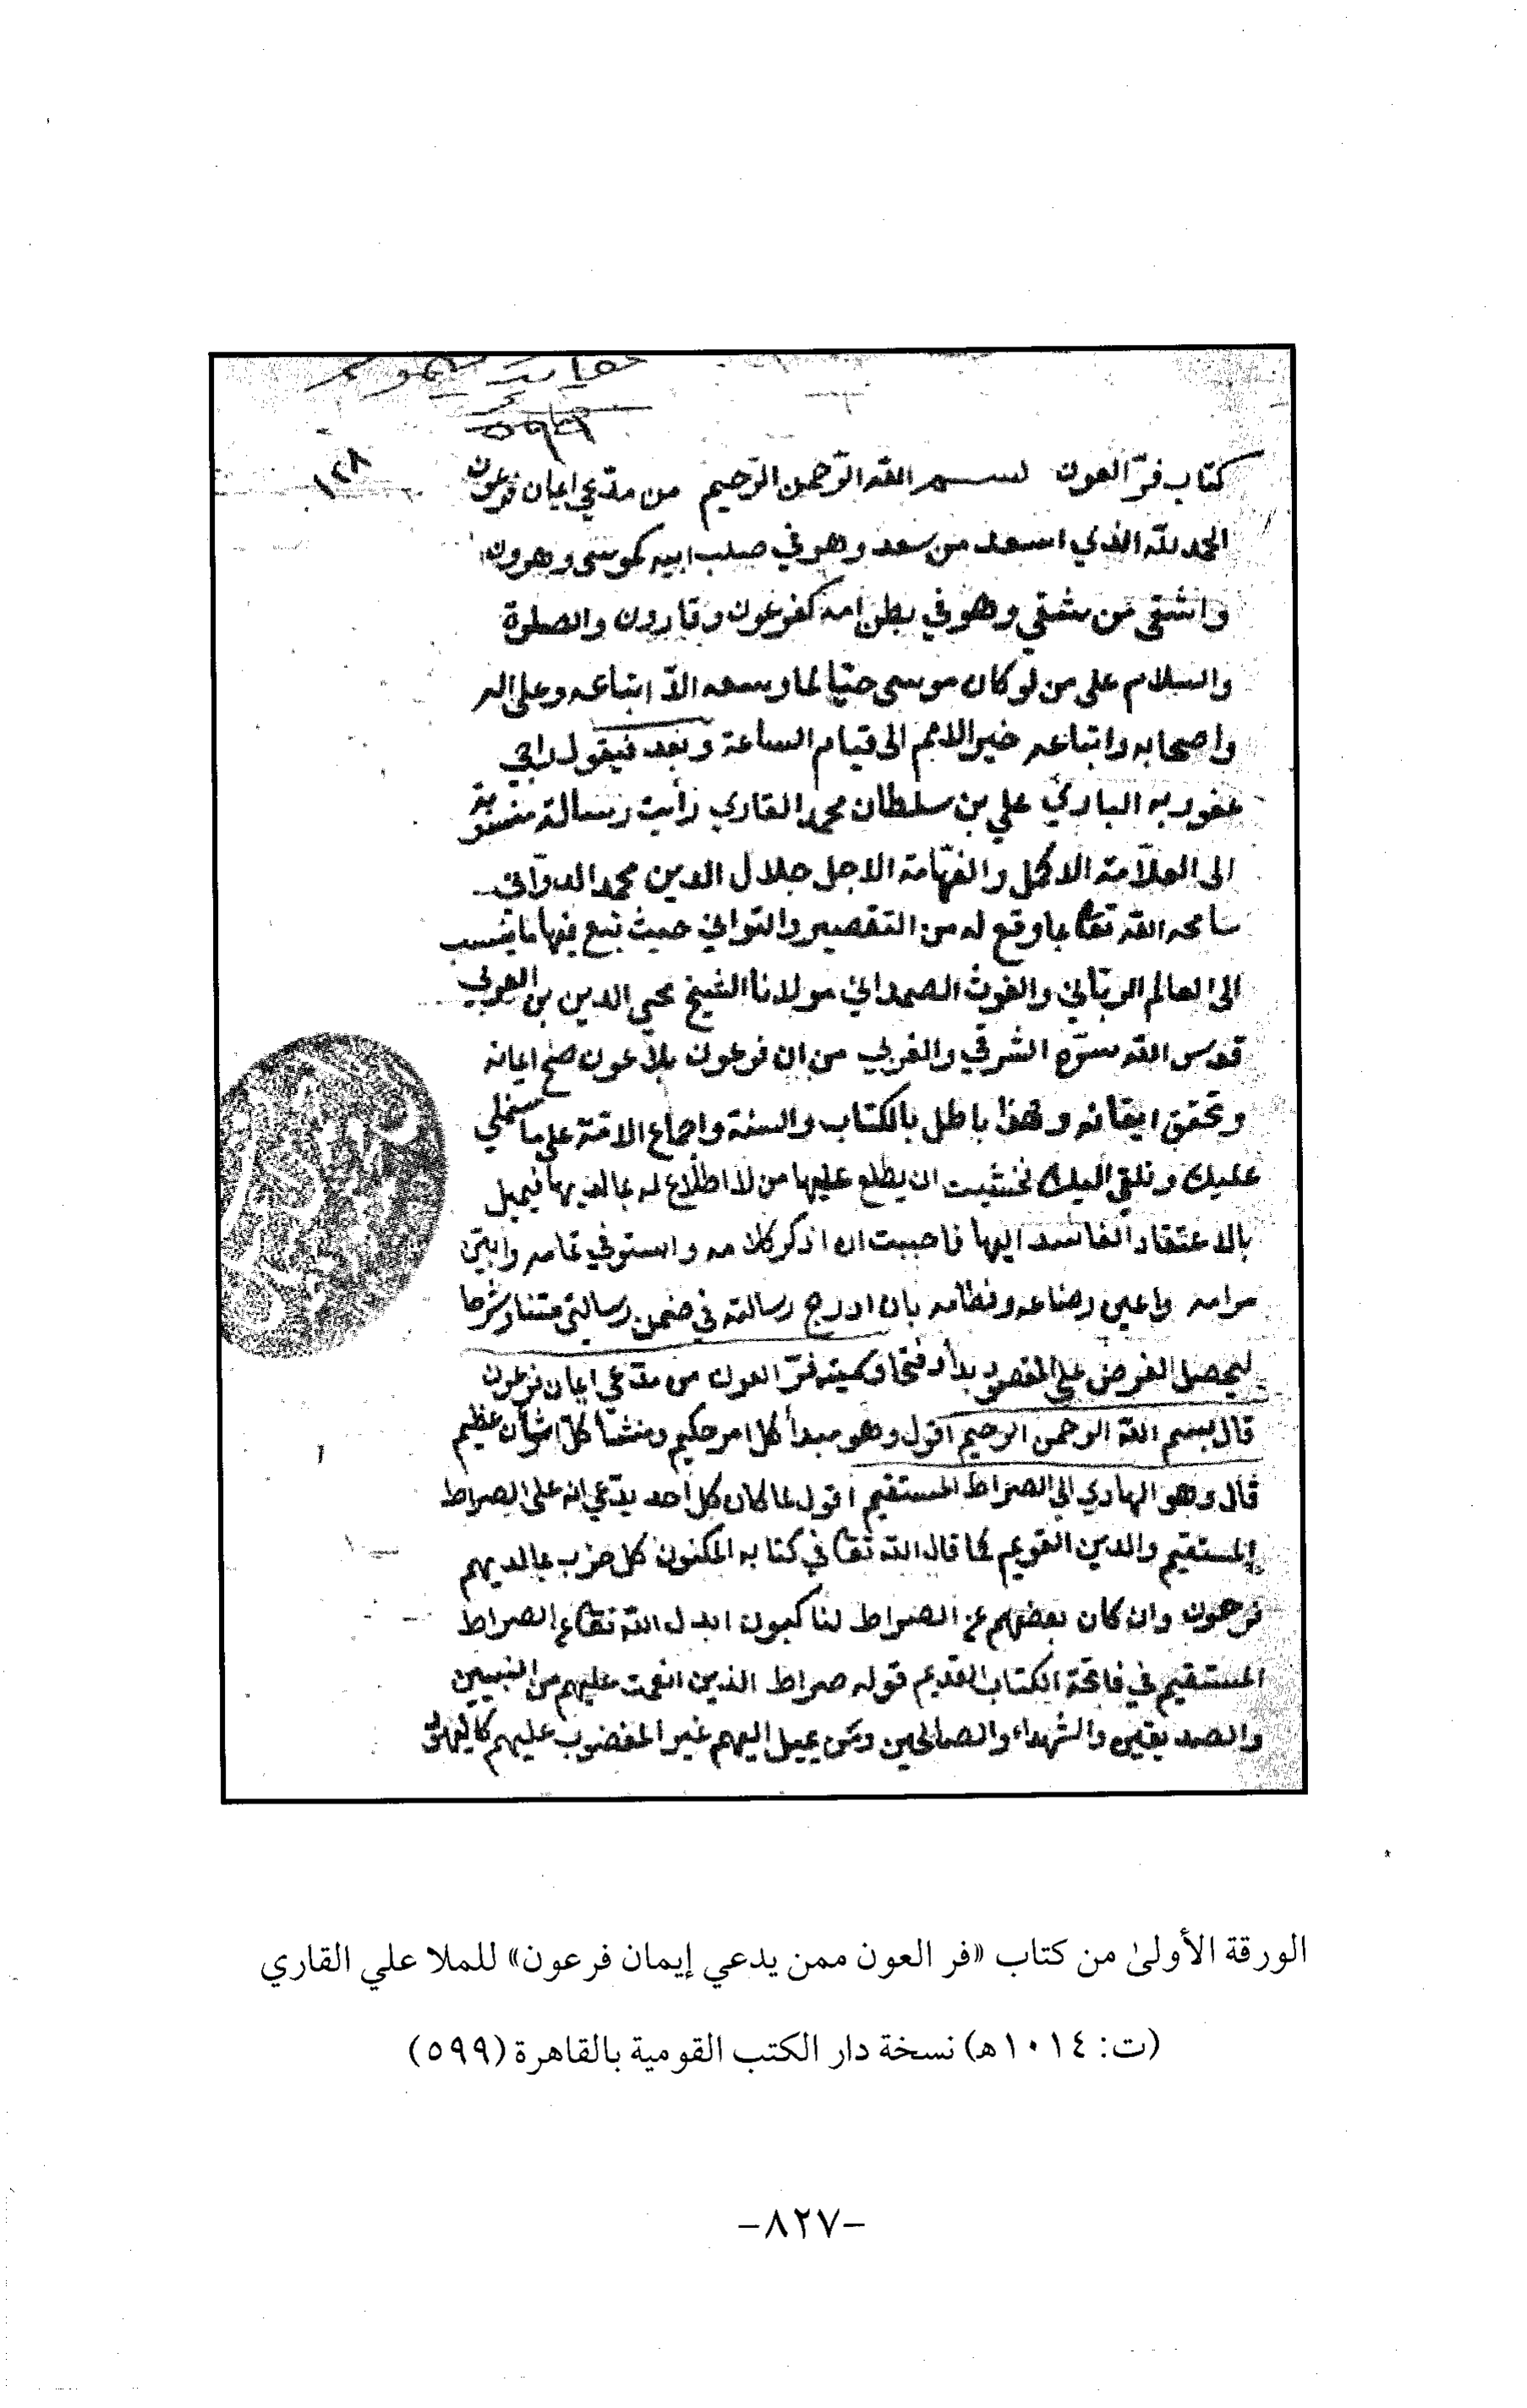 ٥٩٩
١٢٨
كتاب فرّ العون بسم الله الرّحمن الرّحيم من مدّعي ايمان فرعون
الحمد لله الذي اسعد من سعد وهو في صلب ابيه كموسى وهرون
واشقى من شقي وهو في بطن امه كفرعون وقارون والصلوة
والسلام على من لو كان موسى حيّا لما وسعه الّا اتباعه وعلى اله
واصحابه واتباعه خير الامم الى قيام الساعة وبعد فيقول راجي
عفو ربه الباري علي بن سلطان محمد القاري رأيت رسالة منسوبة
الى العلّامة الاكمل والفهّامة الاجل جلال الدين محمد الدوّاني
سامحه الله تعا بما وقع له من التقصير والتواني حيث تبع فيها ما ينسب
الى العالم الربّاني والغوث الصمداني مولانا الشيخ محيي الدين بن العربي
قدس الله سرّه الشرقي والغربي من ان فرعون بلا عون صح ايمانه
وتحقق ايقانه وهذا باطل بالكتاب والسنة واجماع الامّة على ما سنملي
عليك ونلقي اليك فخشيت ان يطلع عليها من لا اطلاع له بما لديها فيميل
بالاعتقاد الفاسد اليها فاحببت ان اذكر كلامه واستوفي تمامه وابيّن
مرامه واعين رضاعه وفطامه بان ادرج رسالته في ضمن رسالتي متنا وشرحا
ليحصل الغرض على المقصود بدأ وفتحا وسميته فرّ العون من مدّعي ايمان فرعون
قال بسم الله الرحمن الرحيم اقول وهو مبدأ كل امر حكيم ومنشأ كل شأن عظيم
قال وهو الهادي الى الصراط المستقيم اقول لما كان كل احد يدّعي انه على الصراط
المستقيم والدين القويم كما قال الله تعا في كتابه المكنون كل حزب بما لديهم
فرحون وان كان بعضهم عن الصراط لناكبون ابدل الله تعا عن الصراط
المستقيم في فاتحة الكتاب القديم قوله صراط الذين انعمت عليهم من النبيين
والصديقين والشهداء والصالحين ومن يميل اليهم غير المغضوب عليهم كاليهود
الورقة الأولىٰ من كتاب «فر العون ممن يدعي إيمان فرعون» للملا علي القاري
(ت: ١٠١٤هـ) نسخة دار الكتب القومية بالقاهرة (٥٩٩)
-٨٢٧-